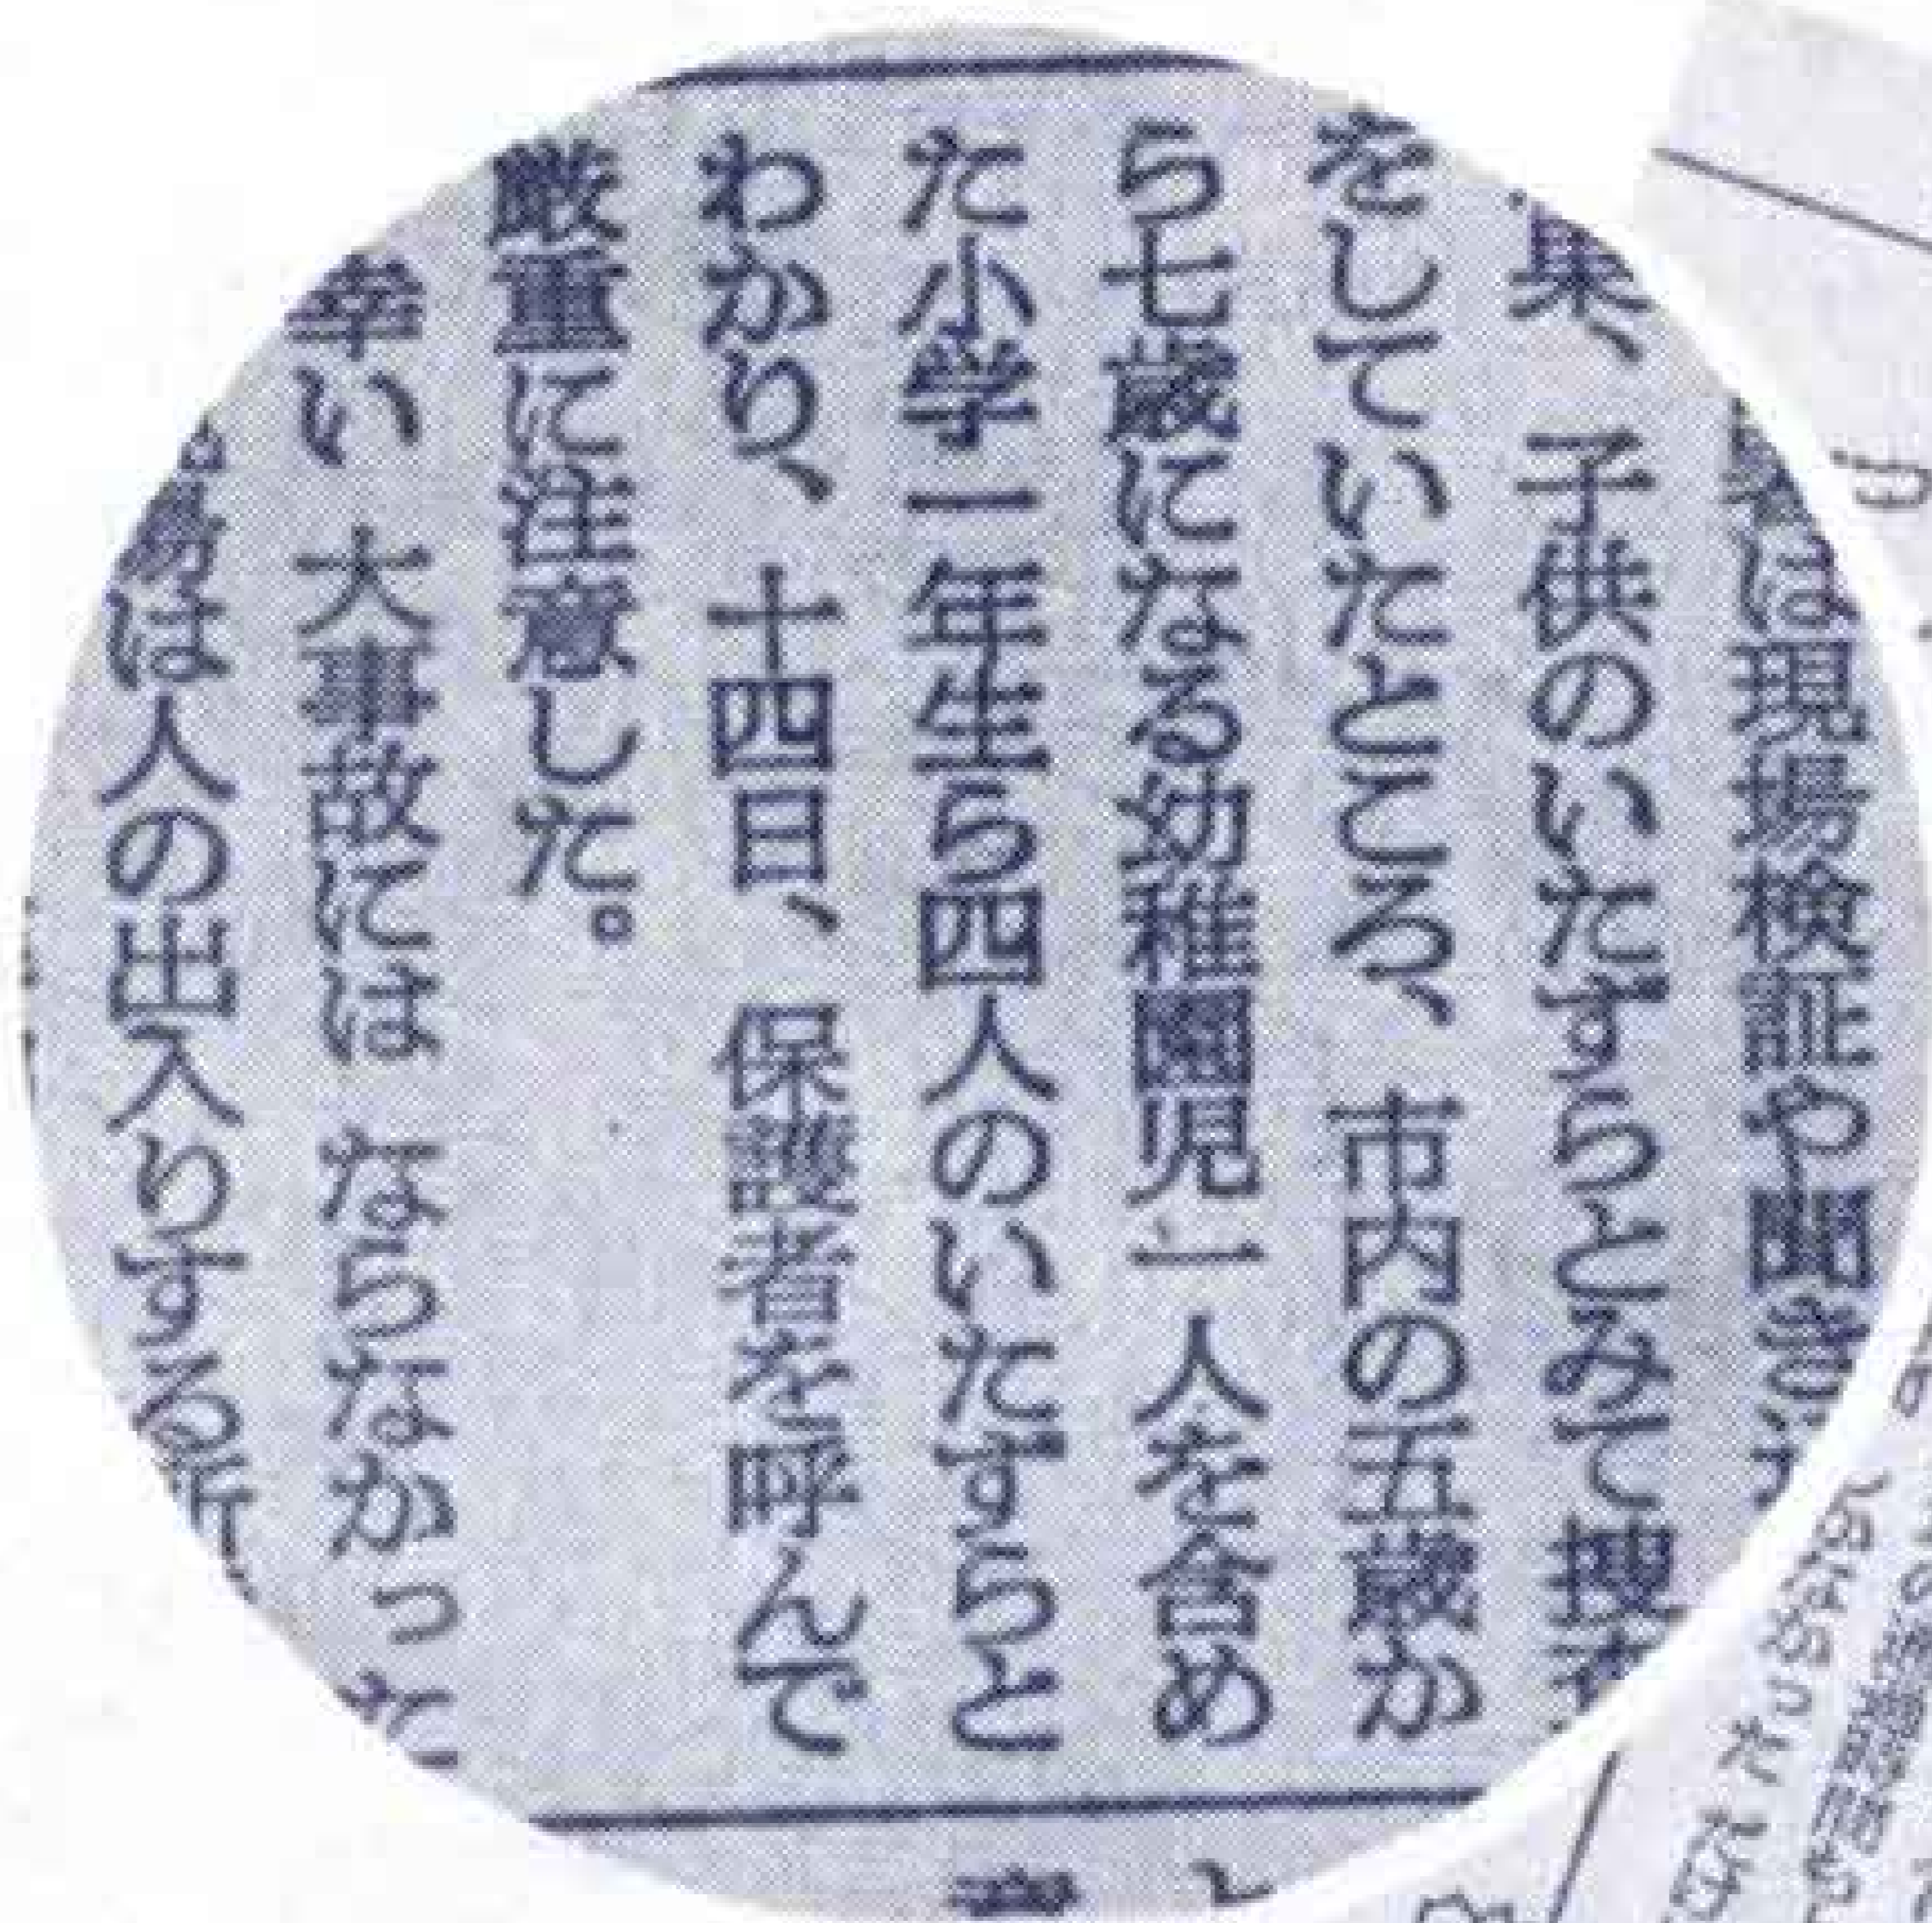 は現場検証や聞き
果、子供のいたずらとみて捜査
をしていたところ、市内の五歳か
ら七歳になる幼稚園児一人を含め
た小学一年生ら四人のいたずらと
わかり、十四日、保護者を呼んで
厳重に注意した。
幸い大事故にはならなかった
は人の出入りする所